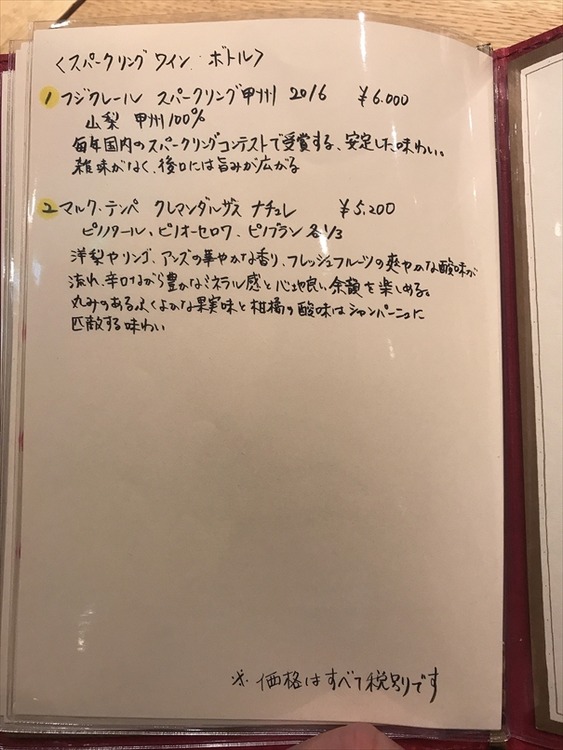 〈スパークリング ワイン ボトル〉
1 フジクレール スパークリング甲州 2016 ¥6.000
山梨 甲州100%
毎年国内のスパークリングコンテストで受賞する、安定した味わい。
雑味がなく、後口には旨みが広がる
2 マルク・テンペ クレマンダルザス ナチュレ ¥5,200
ピノノタール、ピノオーセロワ、ピノブラン 各1/3
洋梨やリンゴ、アンズの華やかな香り、フレッシュフルーツの爽やかな酸味が
流れ、辛口ながら豊かなミネラル感と心地良い余韻を楽しめる。
丸みのあるふくよかな果実味と柑橘の酸味はシャンパーニュに
匹敵する味わい
※ 価格はすべて税別りです